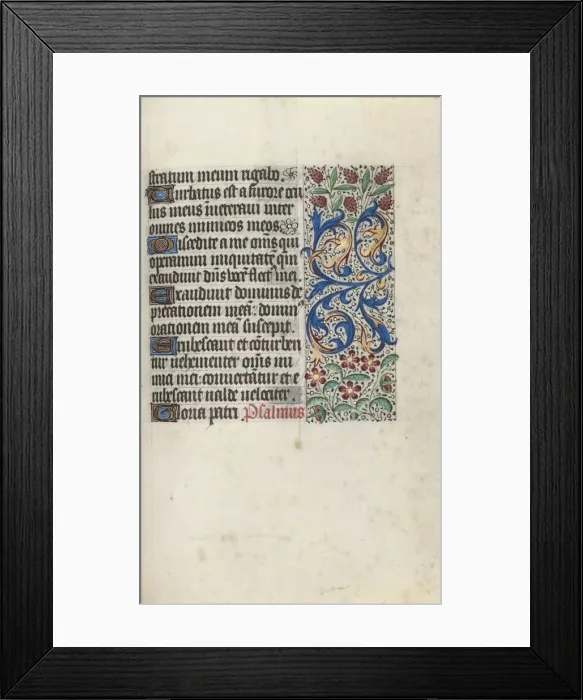 stratum meum rigabo.
Turbatus est a furore ocu
lus meus inveteravi inter
omnes inimicos meos
Discedite a me om̄s qui
operamini iniquitatē qm̄
exaudivit dn̄s vocē flet' mei
Exaudivit dominus de
precationem meā: domin'
orationem meā suscepit.
Erubescant et cōturben
tur vehementer om̄s ini
mici mei: convertātur et e
rubescant valde velociter.
Gloria patri Psalmus